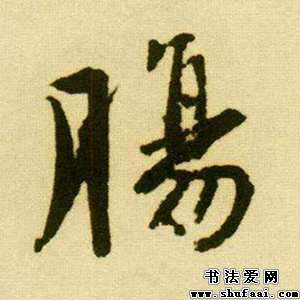 腸
书法爱网
www.shufaai.com